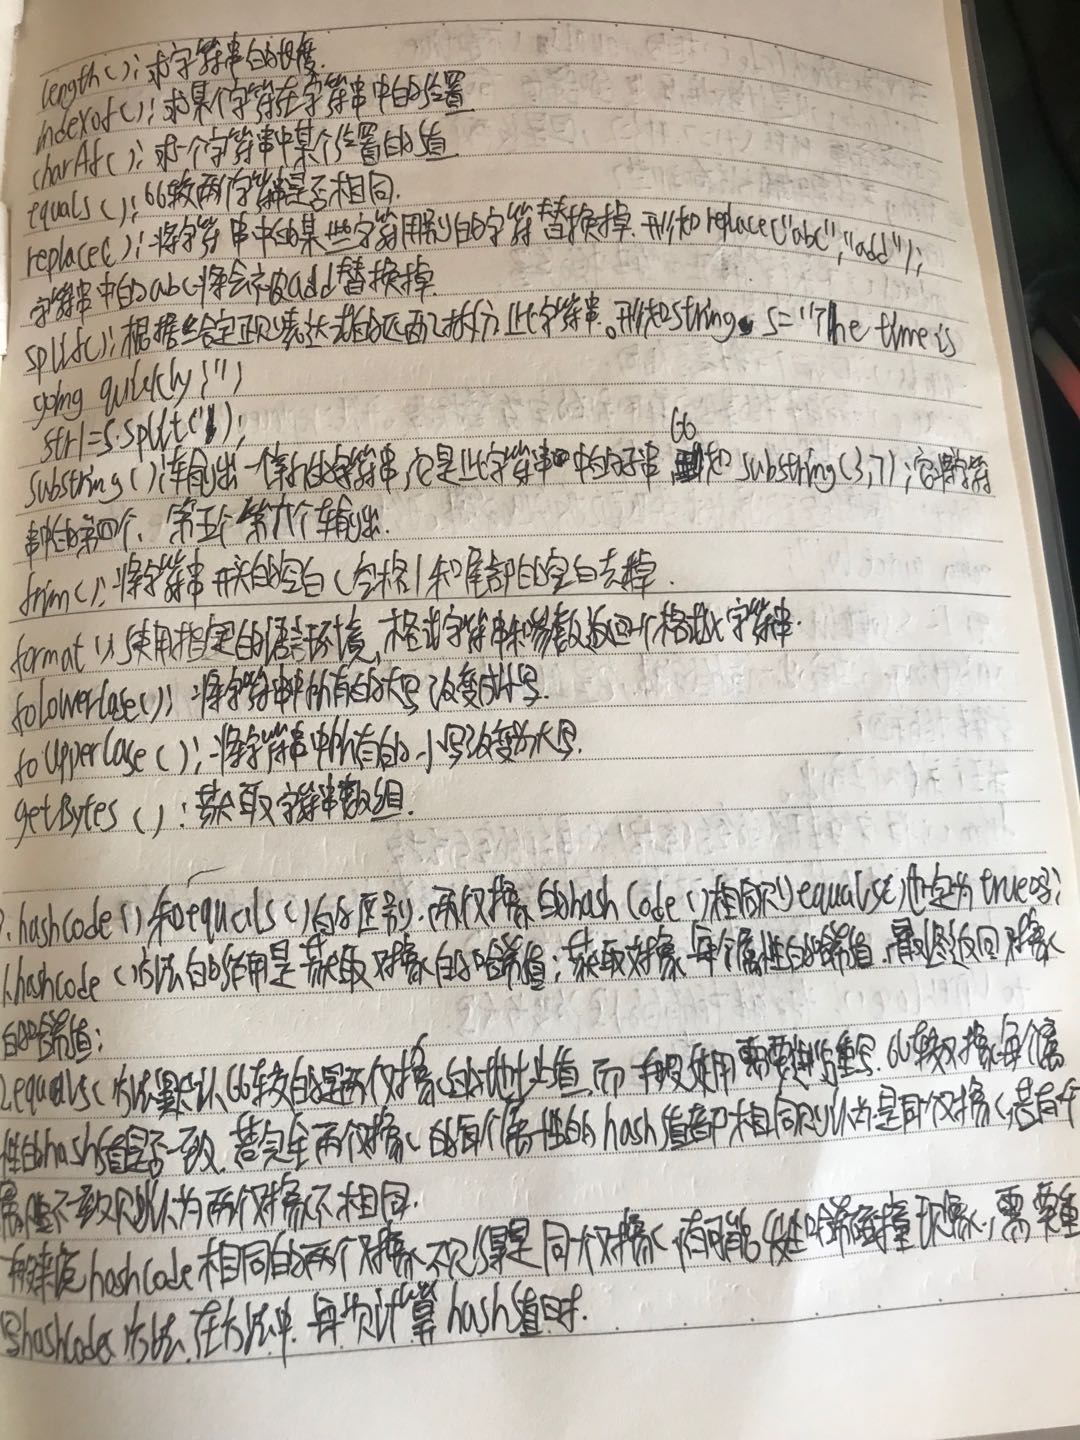 length(); 求字符串的长度.
indexof(); 求某个字符在字符串中的位置
charAt(); 求一个字符串中某个位置的值
equals(); 比较两个字符串是否相同.
replace(); 将字符串中的某些字符用别的字符替换掉. 形如replace("abc";"add");
字符串中的abc将会被add替换掉.
split(); 根据给定正则表达式的匹配拆分此字符串。形如string s="The time is
going quickly!")
str1=s.split(" ");
substring(); 输出一个新的字符串, 它是此字符串中的子串 比如 substring(3,7); 它将字符
串中的第四个、第五个 第六个输出.
trim(); 将字符串开头的空白(空格)和尾部的空白去掉.
format(); 使用指定的语言环境, 格式字符串和参数返回一个格式化字符串.
toLowerCase(); 将字符串中所有的大写改变成小写.
to UpperCase(); 将字符串中所有的小写改变为大写.
getBytes(): 获取字符串数组.
hashcode()和equals()的区别. 两个对象的hashCode()相同则equals()也一定为true吗;
1.hashcode()方法的作用是获取对象的哈希值; 获取对象每个属性的哈希值, 最终返回对象
的哈希值;
2.equals()方法默认比较的是两个对象的地址值, 而一般使用需要进行重写. 比较对象每个属
性的hash值是否一致. 若完全两个对象的每个属性的hash值都相同则认为是同一个对象, 若有个
属性不一致则认为两个对象不相同.
一般来说hashCode相同的两个对象不一定是同一个对象, 有可能发生哈希碰撞现象, 需要重
写hashCode()方法. 在方法中. 每次计算hash值时.